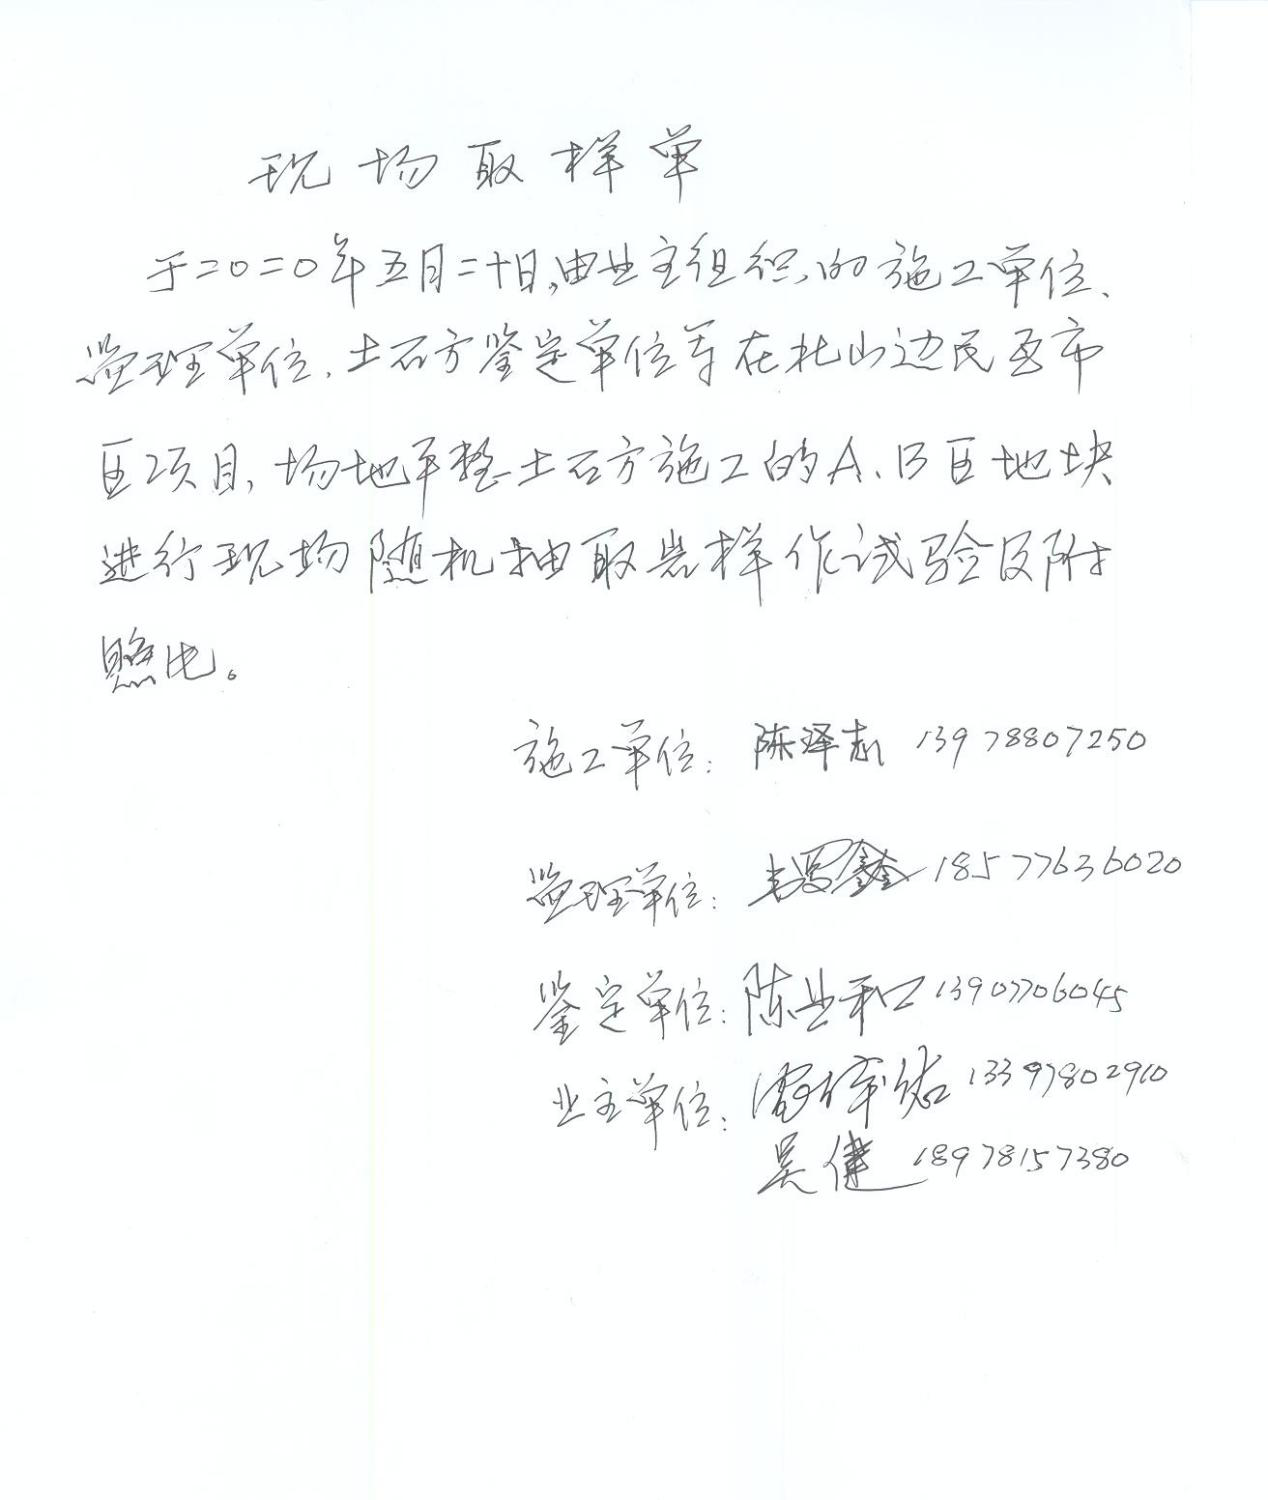 现场取样单
于二〇二〇年五月二十日,由业主组织的施工单位、
监理单位、土石方鉴定单位等在杜山边民互市
区项目,场地平整土石方施工的A、B区地块
进行现场随机抽取岩样作试验及附
照片。
施工单位:陈泽志 13978807250
监理单位: 18577636020
鉴定单位:陈业和 13907706045
业主单位: 13397802910
吴健 18978157380